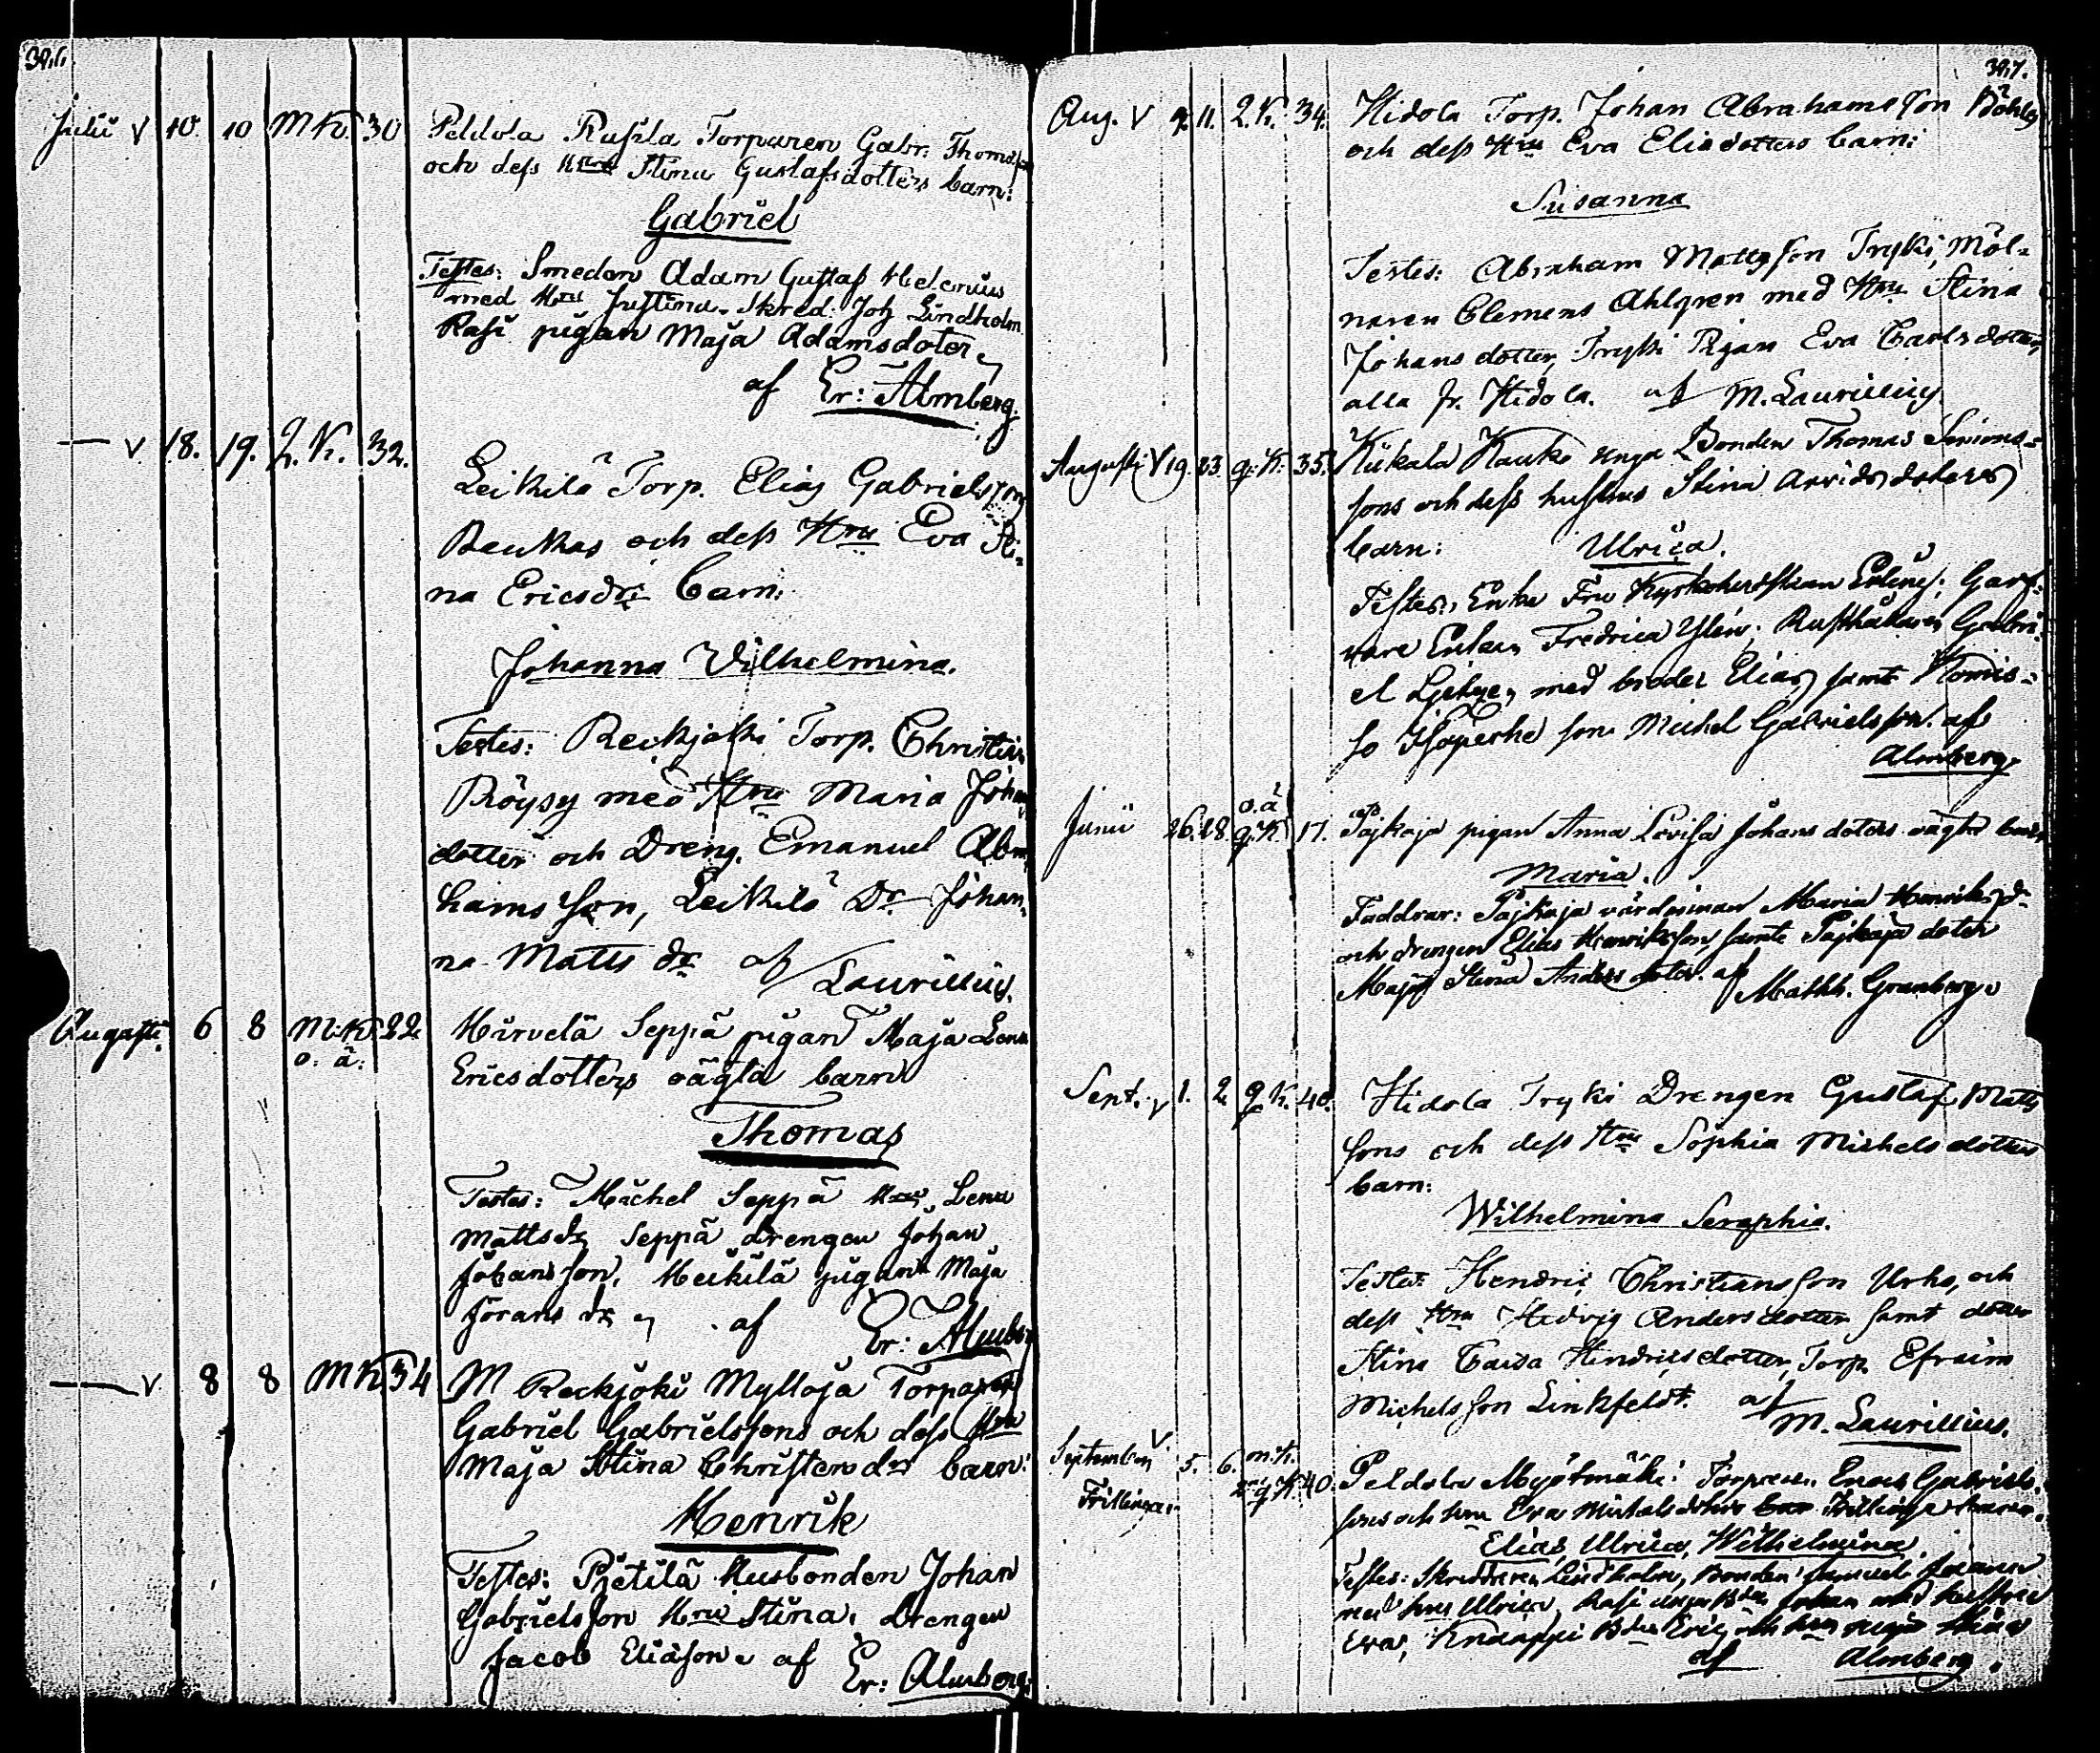 Julii V 10. 10 M K. 30 Peldola Rusila Torparen Gabr: Thomasson
och dess Hustru Stina Gustafsdotters barn:
Gabriel
Testes: Smeden Adam Gustaf Helenius
med Hru Justina. Skred. Joh Lindholm
Rasi pigan Maja Adamsdoter
af Er: Almberg.
— V 18. 19. Q. K. 32. Leikilä Torp. Elias Gabrielsson
och dess Hru Eva Sti-
na Ericsdr barn:
Johanna Vilhelmina.
Testes: Reckjoki Torp. Christian
Röysy med Hru Maria Johans
dotter och Dreng. Emanuel Abra
hamsson, Leikilä Dr Johan
na Matts dr af Laurillius.
Augusti. 6 8 M: K: 22
o. ä: Hirvelä Seppä pigan Maja Lena
Ericsdotters oägta barn
Thomas
Testes: Michel Seppä Hru Lena
Mattsdr Seppä drengen Johan
Johansson, Heikilä pigan Maja
Jörans dr af Er: Almberg
— V 8 8 M K. 34 M Reckjoki Mylloja Torparen
Gabriel Gabrielssons och dess Hru
Maja Stina Christersdr barn:
Henrik
Testes: Pjetilä Husbonden Johan
Gabrielsson Hru Stina. drengen
Jacob Eliasson af Er: Almberg.
397.
Aug. V 9. 11. Q. K. 34. Hidola Torp. Johan Abrahamsson
och dess Hru Eva Eliedotters barn:
Susanna
Testes: Abraham Mattsson Tryki, Möl-
naren Clemens Ahlgren med Hru Stina
Johans dotter, Tryki Pigan Eva Carlsdotter,
alla fr. Hidola. af M. Laurillius
Augusti V 19. 23 q: K: 35. Kiikala Kauko unga Bonden Thomas Simons-
sons och dess hustrus Stina Arvidsdoters
barn: Ulrica.
Testes: Enke Fru Kyrkoherdskan; Garf-
vare Enkan Fredrica; Rusthållaren Gabri-
el med broder Elias samt
so son Michel Gabrielsson. af
Almberg
Junii 26. 28.
o. ä
q. K. 17. Pajkaja pigan Anna Lovisa Johans doters oägta barn
Maria.
Faddrar: Pajkaja värdinnan Maria Henriksdr
och drengen Elias Henriksson samt Pajkaja doter
Maja Stina Anders doter. af Mathh. Granberg.
Sept. V 1. 2 q K. 40. Hidola Tryki Drengen Gustaf Matts
sons och dess Hru Sophia Michelsdotters
barn:
Wilhelmina Seraphia.
Testes: Hendric Christiansson Urho, och
dess Hru Hedvig Andersdotter samt dotter
Stina Caisa Hindricsdotter, Torp. Efraim
Michelsson Linkfeldt. af M. Laurillius.
September V. 5. 6. m: K.
q K 40. Peldola Myötmäki Torparen Enoch Gabriels-
Trillingar. sons och hru Eva Michelsdoters Trillinge barn.
Elias, Ulrica, Wilhelmina.
Testes: Skreddaren Lindholm, Bonden Samuel
med hru Ulrica, Rasi unga Johan med hustru
Eva, Knaappi Eric och hru Maja Stina
af Almberg.